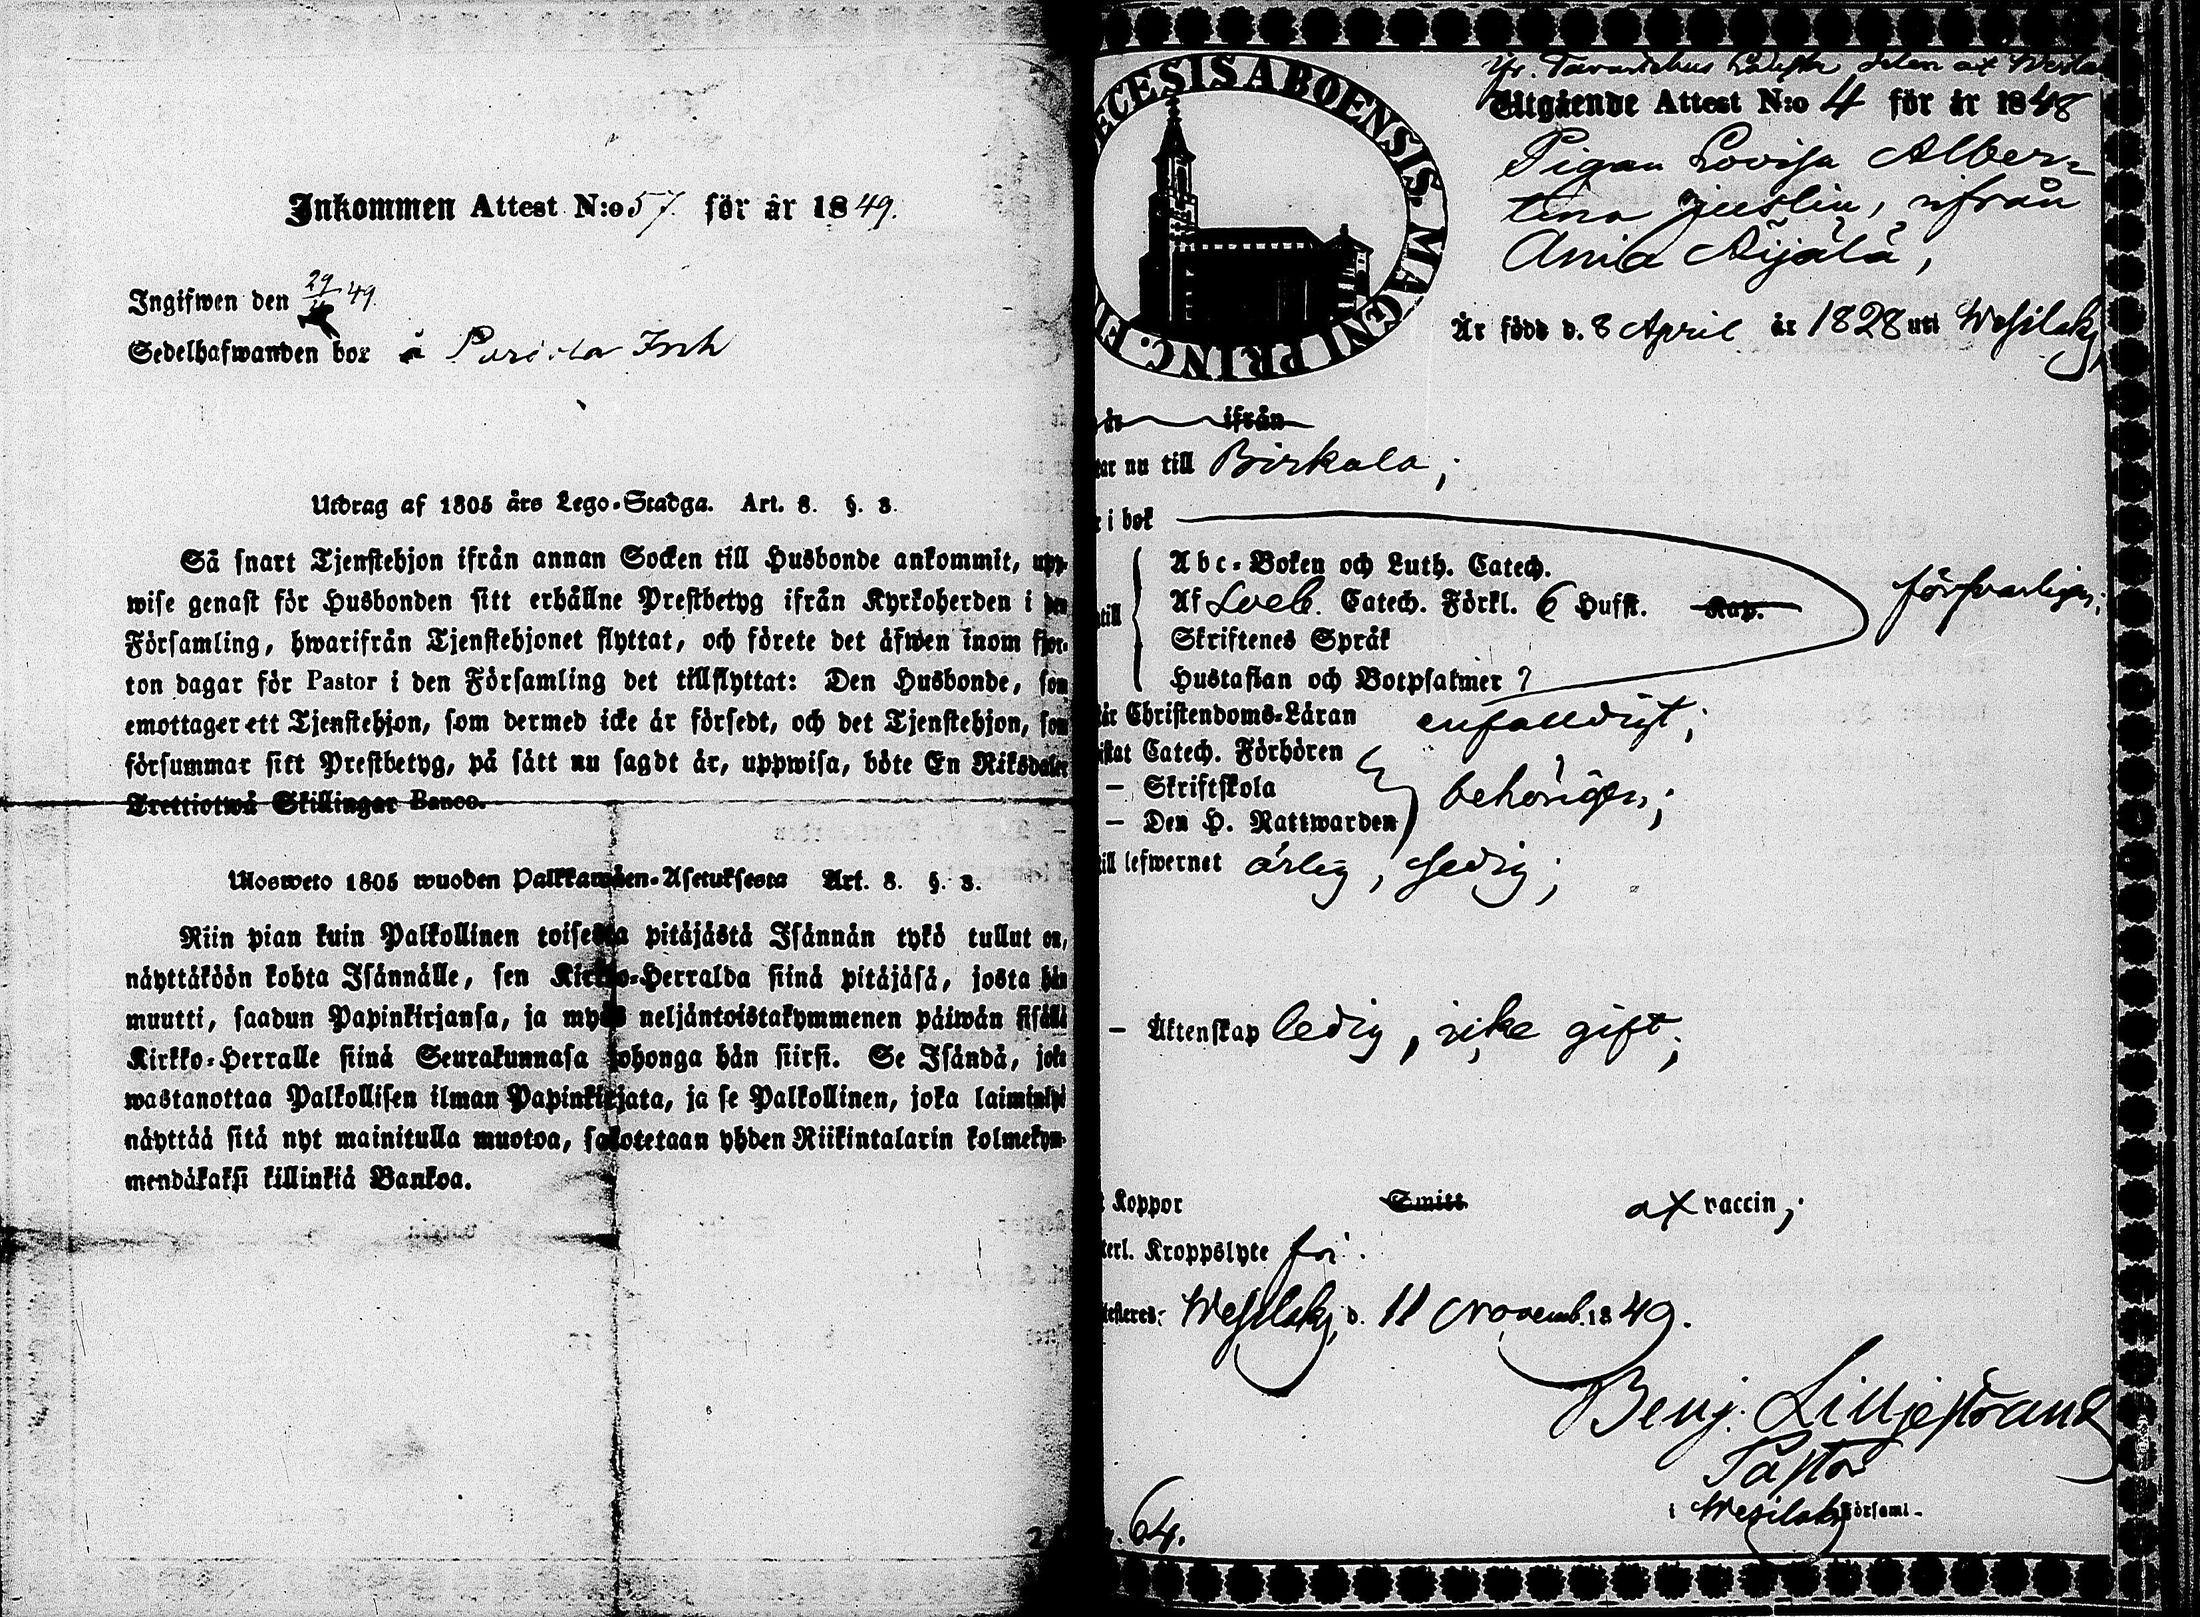 Inkommen Attest N:o 57. för år 1849.
Ingifwen den 29 49.
Sedelhafwanden bor å
Utdrag af 1805 års Lego-Stadga. Art. 8. §. 3.
Så snart Tjenstehjon ifrån annan Socken till Husbonde ankommit, upp-
wise genast för Husbonden sitt erhållne Prestbetyg ifrån Kyrkoherden i den
Församling, hwarifrån Tjenstehjonet flyttat, och förete det äfwen inom fjor-
ton dagar för Pastor i den Församling det tillflyttat: Den Husbonde, som
emottager ett Tjenstehjon, som dermed icke är försedt, och det Tjenstehjon, som
försummar sitt Prestbetyg, på sätt nu sagdt är, uppwisa, böte En Riksdaler
Trettiotwå Skillingar Banco.
Ulosweto 1805 wuoden Palkkawäen-Asetuksesta Art. 8. §. 3.
Niin pian kuin Palkollinen toisesta pitäjästä Isännän tykö tullut on,
näyttäköön kohta Isännälle, sen Kirkko-Herralda siinä pitäjäsä, josta hän
muutti, saadun Papinkirjansa, ja myös neljäntoistakymmenen päiwän sisällä
Kirkko-Herralle siinä Seurakunnasa johonga hän siirsi. Se Isändä, joka
wastanottaa Palkollisen ilman Papinkirjata, ja se Palkollinen, joka laiminlyö
näyttää sitä nyt mainitulla muotoa, sakotetaan yhden Riikintalarin kolmekym-
mendäkaksi killinkiä Bankoa.
ECESIS ABOENSIS. MAGNI PRINC.
Utgående Attest N:o 4 för år 1848
Pigan Lovisa Alber-
tina Juslin, ifrån
Ania Äijälä,
Är född d. 8 April år 1828 uti Wesilaks,
år ifrån
tar nu till Birkala;
i bok
till
Abc-Boken och Luth. Catech.
Af Sveb. Catech. Förkl. 6 Hufst. Kap. försvarligen;
Skriftenes Språk
Hustaflan och Botpsalmer 7
Christendoms-Läran enfalldigt;
Catech. Förhören
— Skriftskola behörigen;
— Den H. Nattwarden
till lefwernet ärlig, sedig;
— Äktenskap ledig, icke gift;
Koppor Smitt af vaccin;
terl. Kroppslyte fri.
Wesilaks, d. 11 Novemb. 1849.
Benj. Lilljestrand
Pastor
i Wesilaks Församl.
64.